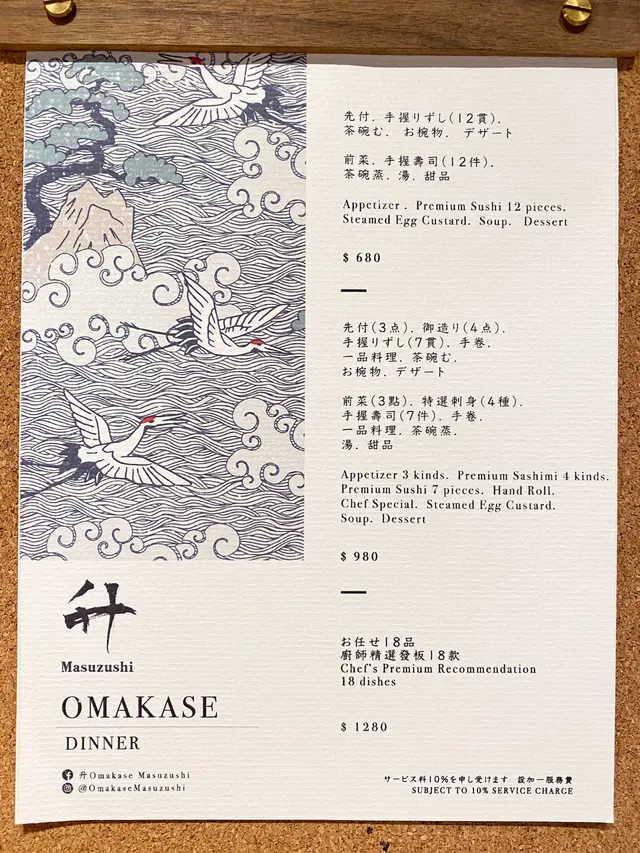 先付. 手握りずし(12貫).
茶碗む. お椀物. デザート
前菜. 手握壽司(12件).
茶碗蒸. 湯. 甜品
Appetizer . Premium Sushi 12 pieces.
Steamed Egg Custard. Soup. Dessert
$ 680
先付(3点). 御造り(4点).
手握りずし(7貫). 手巻.
一品料理. 茶碗む.
お椀物. デザート
前菜(3點). 特選刺身(4種).
手握壽司(7件). 手卷.
一品料理. 茶碗蒸.
湯. 甜品
Appetizer 3 kinds. Premium Sashimi 4 kinds.
Premium Sushi 7 pieces. Hand Roll.
Chef Special. Steamed Egg Custard.
Soup. Dessert
$ 980
お任せ18品
廚師精選發板18款
Chef's Premium Recommendation
18 dishes
$ 1280
サービス料10%を申し受けます 設加一服務費
SUBJECT TO 10% SERVICE CHARGE
升
Masuzushi
OMAKASE
DINNER
升Omakase Masuzushi
@OmakaseMasuzushi